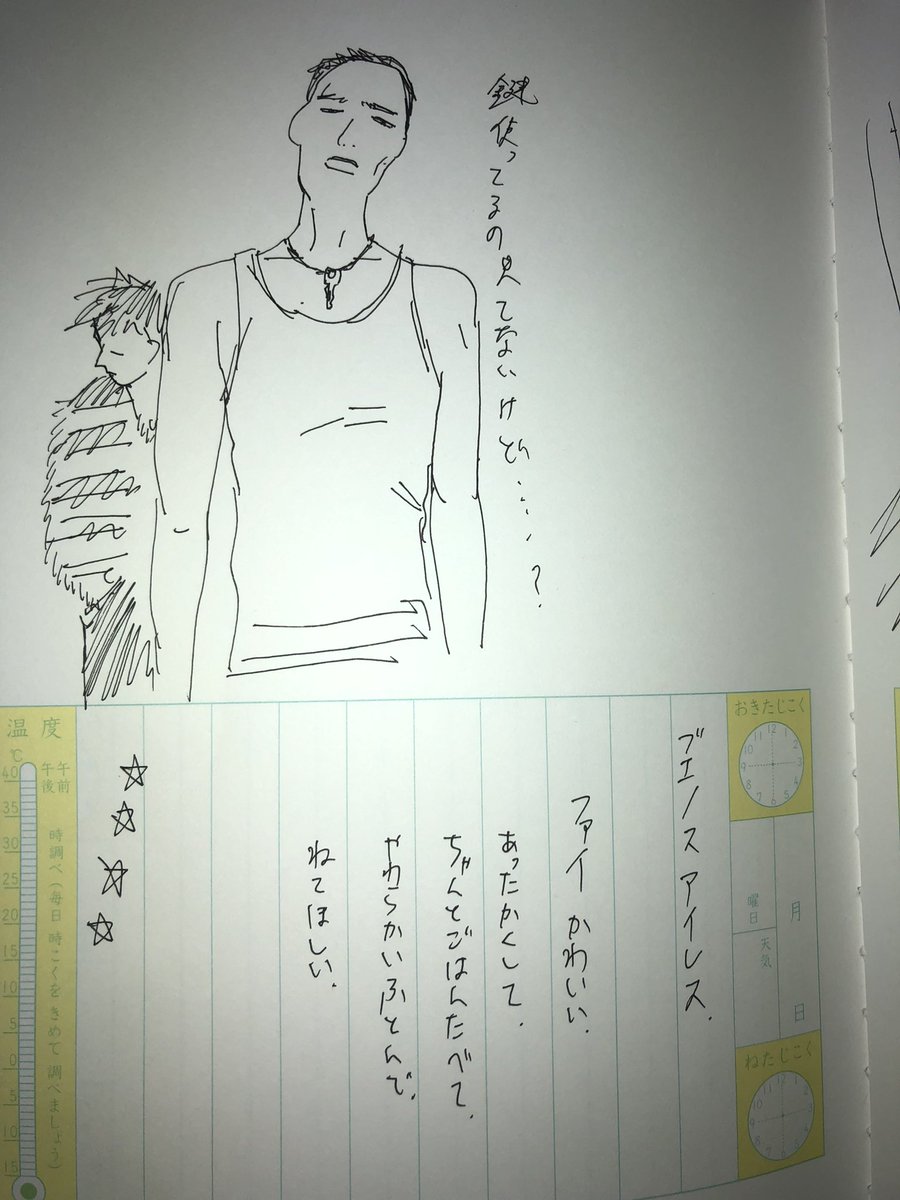 鍵使ってるの見てないけど.....?
おきたじこく
12
1
2
3
4
5
6
7
8
9
10
11
月
日
曜日
天気
ねたじこく
12
1
2
3
4
5
6
7
8
9
10
11
ブエノスアイレス.
ファイかわいい.
あったかくして.
ちゃんとごはんたべて.
やわらかいふとんで.
ねてほしい.
☆☆☆☆
温度
℃
午前
午後
時調べ(毎日時こくをきめて調べましょう)
40
35
30
25
20
15
10
5
0
5
10
15